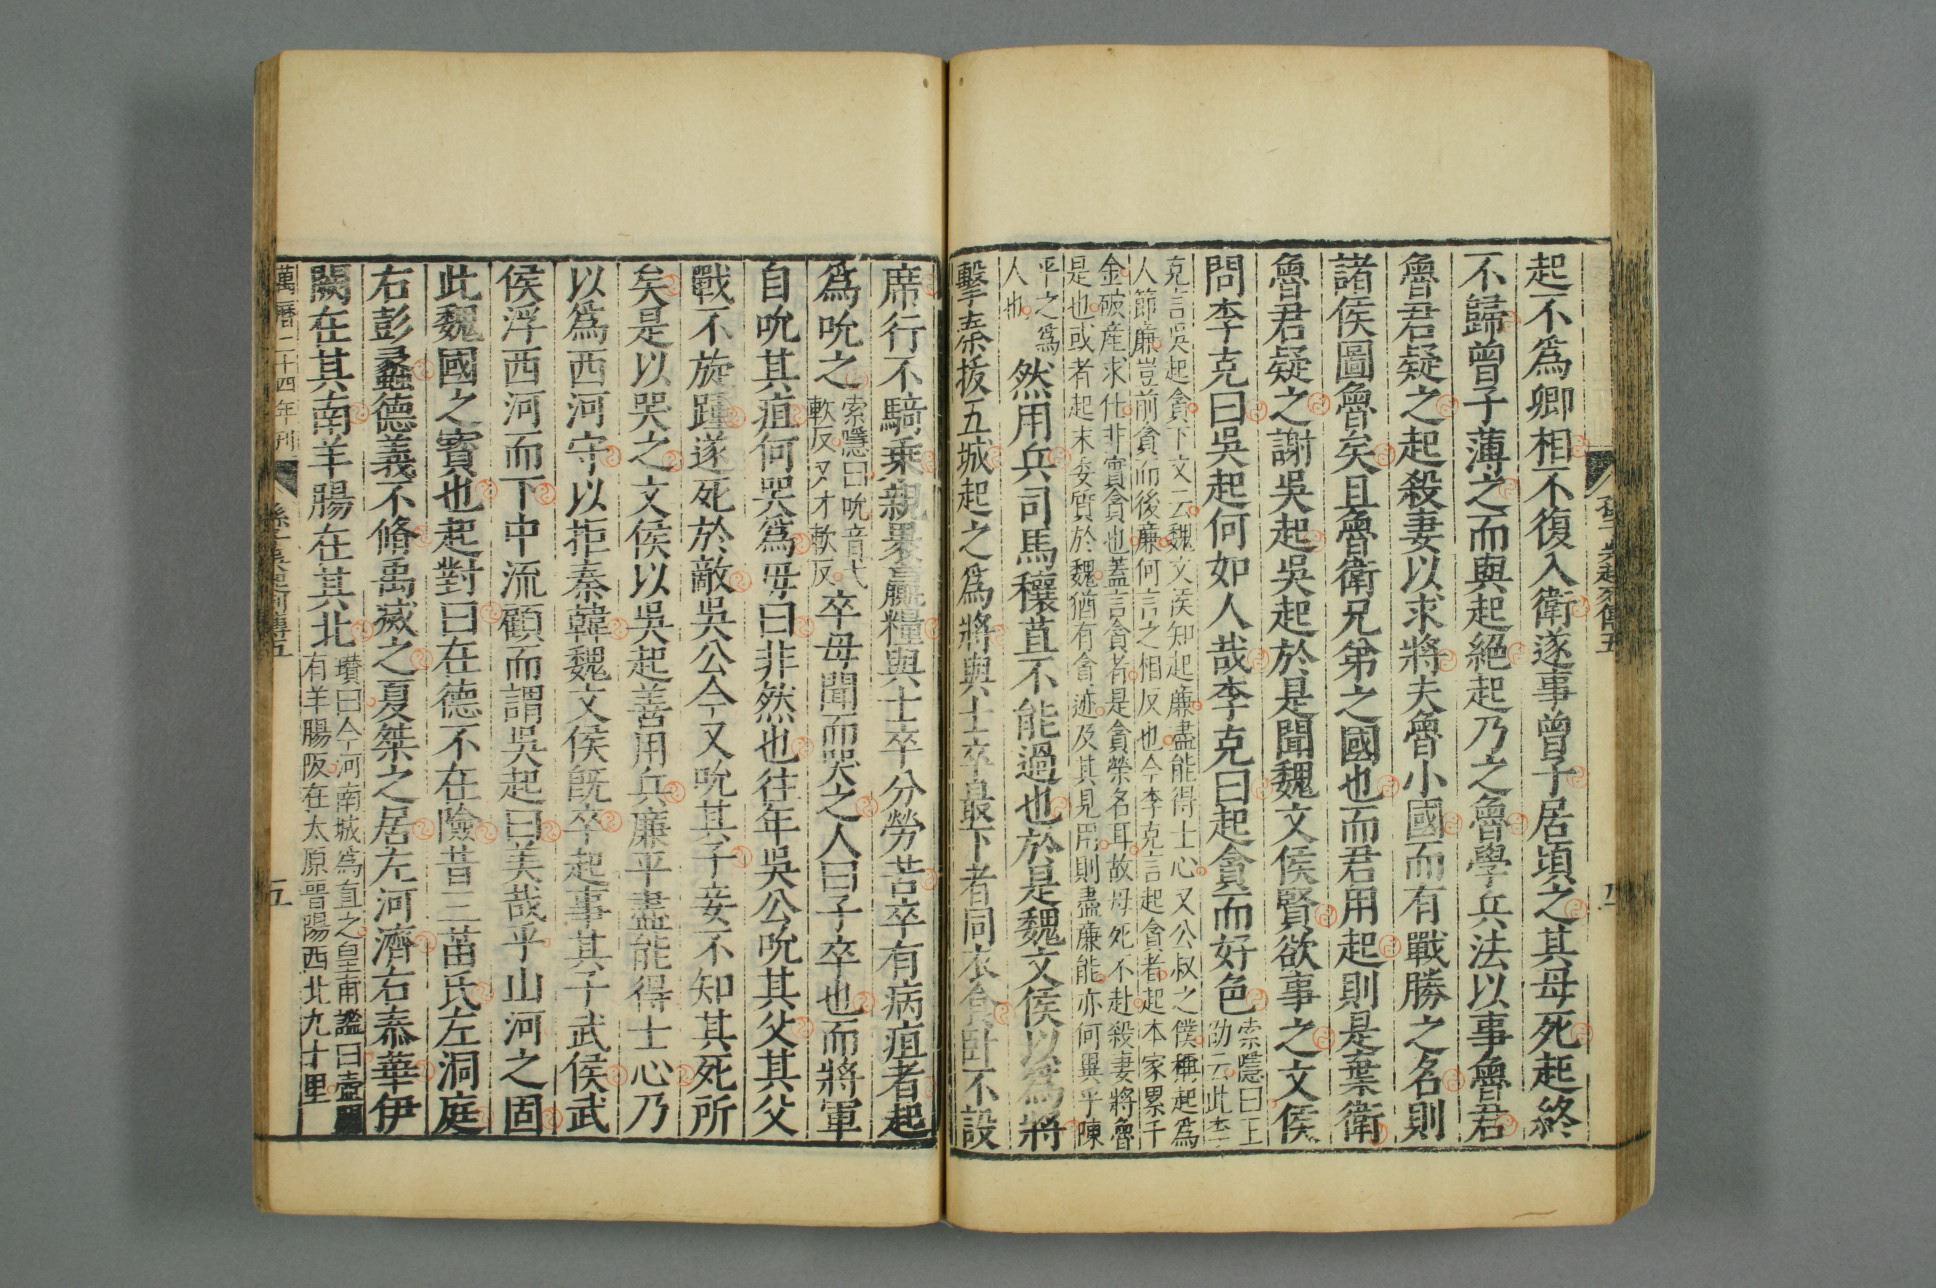 起不爲卿相不復入衛遂事曾子居頃之其母死起終
不歸曾子薄之而與起絕起乃之魯學兵法以事魯君
魯君疑之起殺妻以求將夫魯小國而有戰勝之名則
諸侯圖魯矣且魯衛兄弟之國也而君用起則是棄衛
魯君疑之謝吳起吳起於是聞魏文侯賢欲事之文侯
問李克曰吳起何如人哉李克曰起貪而好色
索隱曰王
劭云此李
克言吳起貪下文云魏文侯知起廉盡能得士心又公叔之僕稱起爲
人節廉豈前貪而後廉何言之相反也今李克言起貪者起本家累千
金破産求仕非實貪也蓋言貪者是貪榮名耳故母死不赴殺妻將魯
是也或者起未委質於魏猶有貪迹及其見用則盡廉能亦何異乎陳
平之爲
人也
然用兵司馬穰苴不能過也於是魏文侯以爲將
擊秦拔五城起之爲將與士卒最下者同衣食卧不設
席行不騎乗親裹贏糧與士卒分勞苦卒有病疽者起
爲吮之
索隱曰吮音弋
軟反又才軟反
卒母聞而哭之人曰子卒也而將軍
自吮其疽何哭爲母曰非然也往年吳公吮其父其父
戰不旋踵遂死於敵吳公今又吮其子妾不知其死所
矣是以哭之文侯以吳起善用兵廉平盡能得士心乃
以爲西河守以拒秦韓魏文侯旣卒起事其子武侯武
侯浮西河而下中流顧而謂吳起曰美哉乎山河之固
此魏國之寶也起對曰在德不在險昔三苗氏左洞庭
右彭蠡德義不脩禹滅之夏桀之居左河濟右泰華伊
闕在其南羊腸在其北
瓚曰今河南城爲直之皇甫謐曰壺
有羊腸阪在太原晉陽西北九十里
萬曆二十四年刊
孫子吳起列傳五
五